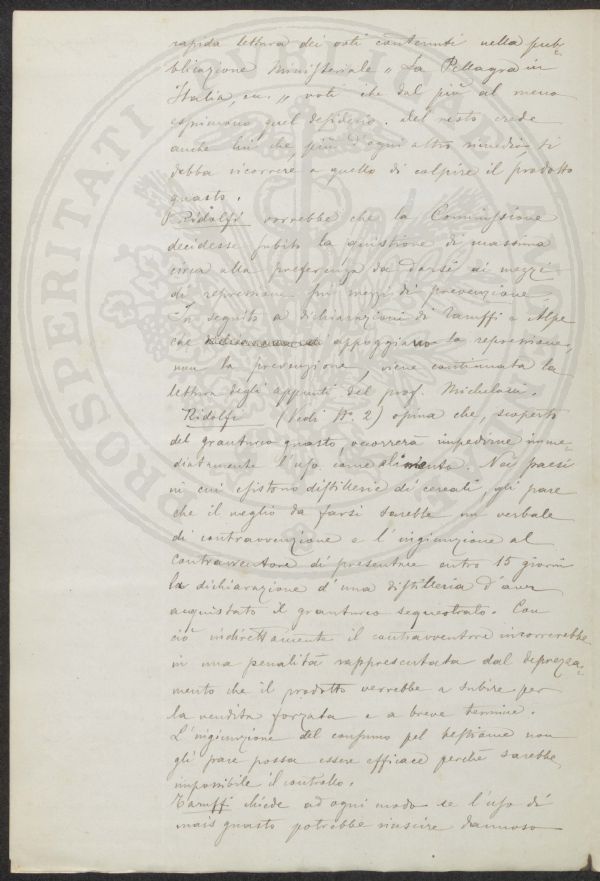 rapida lettura dei voti contenuti nella pub-
blicazione Ministeriale „ La Pellagra in
Italia, ecc. „ voti che dal più al meno
esprimono quel desiderio. Del resto crede
anche lui che, più d'ogni altro rimedio, si
debba ricorrere a quello di colpire il prodotto
guasto.
Ridolfi vorrebbe che la Commissione
decidesse subito la quistione di massima
circa alla preferenza da darsi ai mezzi
di repressione sui mezzi di prevenzione.
In seguito a dichiarazioni di Taruffi e Alpe
che appoggiano la repressione,
non la prevenzione, viene continuata la
lettura degli appunti del prof. Michelacci.
Ridolfi (Vedi N° 2) opina che, scoperto
del granturco guasto, occorrerà impedirne imme-
diatamente l'uso come alimento. Nei paesi
in cui esistono distillerie di cereali, gli pare
che il meglio da farsi sarebbe un verbale
di contravvenzione e l'ingiunzione al
contravventore di presentare entro 15 giorni
la dichiarazione d'una distilleria d'aver
acquistato il granturco sequestrato. Con
ciò indirettamente il contravventore incorrerebbe
in una penalità rappresentata dal deprezza-
mento che il prodotto verrebbe a subire per
la vendita forzata e a breve termine.
L'ingiunzione del consumo pel bestiame non
gli pare possa essere efficace perchè sarebbe
impossibile il controllo.
Taruffi chiede ad ogni modo se l'uso di
mais guasto potrebbe riuscire dannoso
PROSPERITATI PUBLICAE